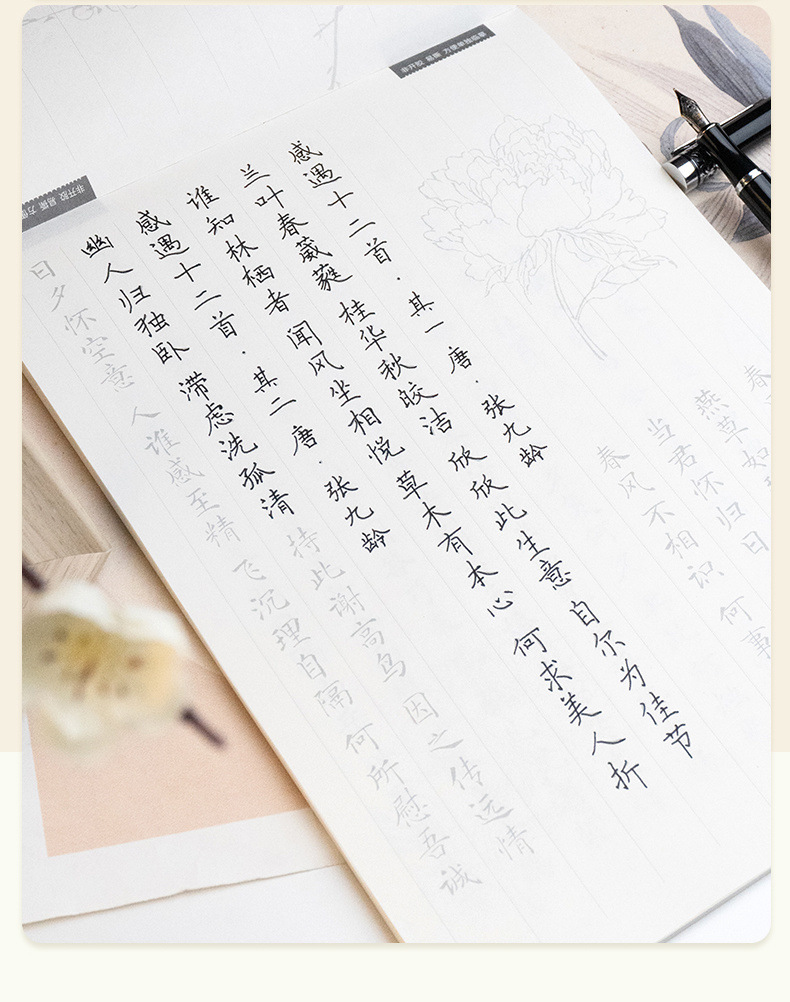 非开胶 易撕 方便单独临摹
非开胶 易撕 方便
春
燕草如
当君怀归日
春风不相识 何事
感遇十二首·其一 唐·张九龄
兰叶春葳蕤 桂华秋皎洁 欣欣此生意 自尔为佳节
谁知林栖者 闻风坐相悦 草木有本心 何求美人折
感遇十二首·其二 唐·张九龄
幽人归独卧 滞虑洗孤清 持此谢高鸟 因之传远情
日夕怀空意 人谁感至精 飞沉理自隔 何所慰吾诚